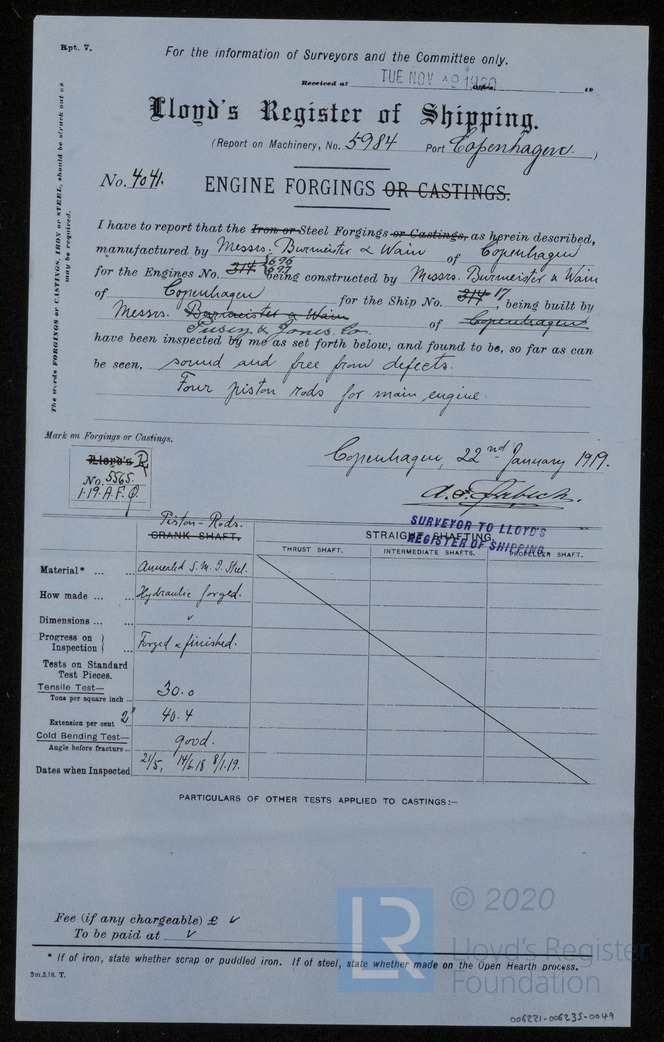 Rpt. 7.
For the information of Surveyors and the Committee only.
Received at TUE NOV 1920 19
Lloyd's Register of Shipping.
(Report on Machinery, No. 5984 Port Copenhagen.)
No. 4041. ENGINE FORGINGS OR CASTINGS.
The words FORGINGS or CASTINGS, IRON or STEEL, should be struck out as
may be required.
I have to report that the Iron or Steel Forgings or Castings, as herein described,
manufactured by Messrs. Burmeister & Wain of Copenhagen
696
for the Engines No. 314 697 being constructed by Messrs. Burmeister & Wain
of Copenhagen for the Ship No. 314 17, being built by
Messrs. Burmeister & Wain of Copenhagen
Pusey & Jones Co.
have been inspected by me as set forth below, and found to be, so far as can
be seen, sound and free from defects.
Four piston rods for main engine.
Mark on Forgings or Castings.
Lloyd's
No. 5565.
1.19. A.F.
Copenhagen, 22nd January 1919.
SURVEYOR TO LLOYD'S
REGISTER OF SHIPPING
Piston-Rods.
CRANK SHAFT. STRAIGHT SHAFTING.
THRUST SHAFT. INTERMEDIATE SHAFTS. PROPELLER SHAFT.
Material* ... ... Annealed S.M.I. Steel.
How made ... ... Hydraulic forged.
Dimensions ... ...
Progress on Inspection } ... Forged & finished.
Tests on Standard
Test Pieces.
Tensile Test—
Tons per square inch ... 30.0
Extension per cent 2" 40.4
Cold Bending Test—
Angle before fracture ... good.
Dates when Inspected 21/5, 14/6.18 8/1.19.
PARTICULARS OF OTHER TESTS APPLIED TO CASTINGS:—
Fee (if any chargeable) £
To be paid at
* If of iron, state whether scrap or puddled iron. If of steel, state whether made on the Open Hearth process.
5m.3.18. T.
© 2020
LR
Lloyd's Register
Foundation
006221-006235-0049